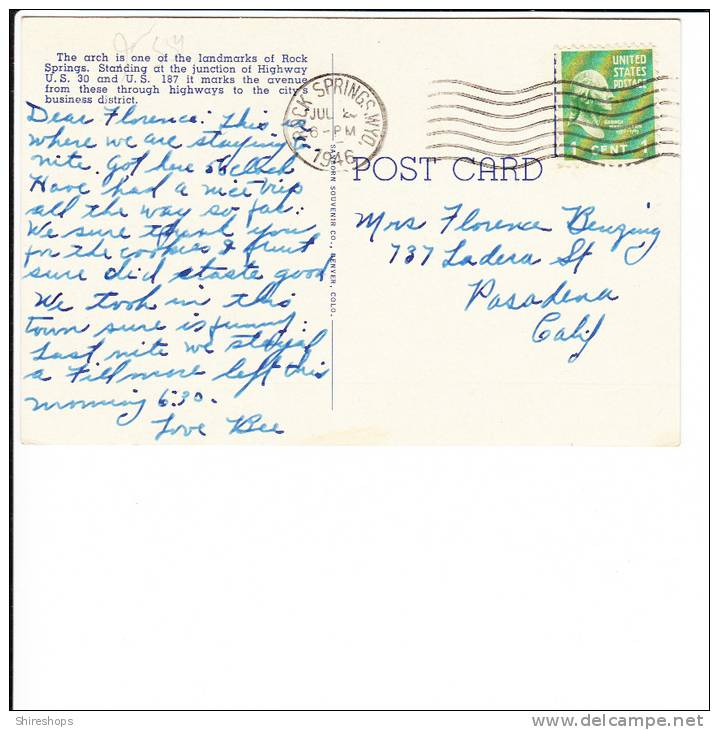 The arch is one of the landmarks of Rock
Springs. Standing at the junction of Highway
U.S. 30 and U.S. 187 it marks the avenue
from these through highways to the city's
business district.
Dear Florence: This is
where we are staying
nite. Got here
Have had a nice trip
all the way so far.
We sure thank you
for the cookies & fruit
sure did staste good
We took in this
town sure is funny.
Last nite we stayed
a Fillmore left this
morning 6:30.
Love Bee
ROCK SPRINGS, WYO.
JUL
6-PM
1946
SANBORN SOUVENIR CO., DENVER, COLO.
UNITED
STATES
POSTAGE
1 CENT 1
POST CARD
Mrs Florence Benzing
737 Ladera St
Pasadena
Calif
Shireshops
delcampe.net